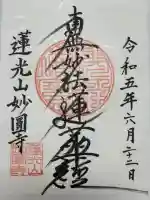 令和五年六月
南無妙法蓮華経
蓮光山妙圓寺